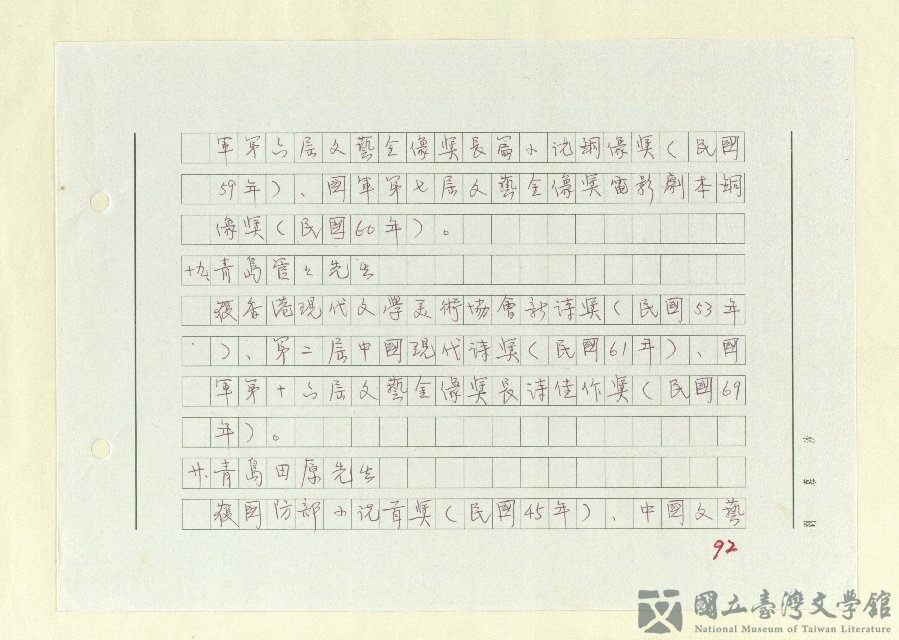 軍第六屆文藝金像獎長篇小說銅像獎(民國
59年)、國軍第七屆文藝金像獎電影劇本銅
像獎(民國60年)。
十九、青島管々先生
獲香港現代文學美術協會新詩獎(民國53年
)、第二屆中國現代詩獎(民國61年)、國
軍第十六屆文藝金像獎長詩佳作獎(民國69
年)。
廿、青島田原先生
獲國防部小說首獎(民國45年)、中國文藝
92
國立臺灣文學館
National Museum of Taiwan Literature